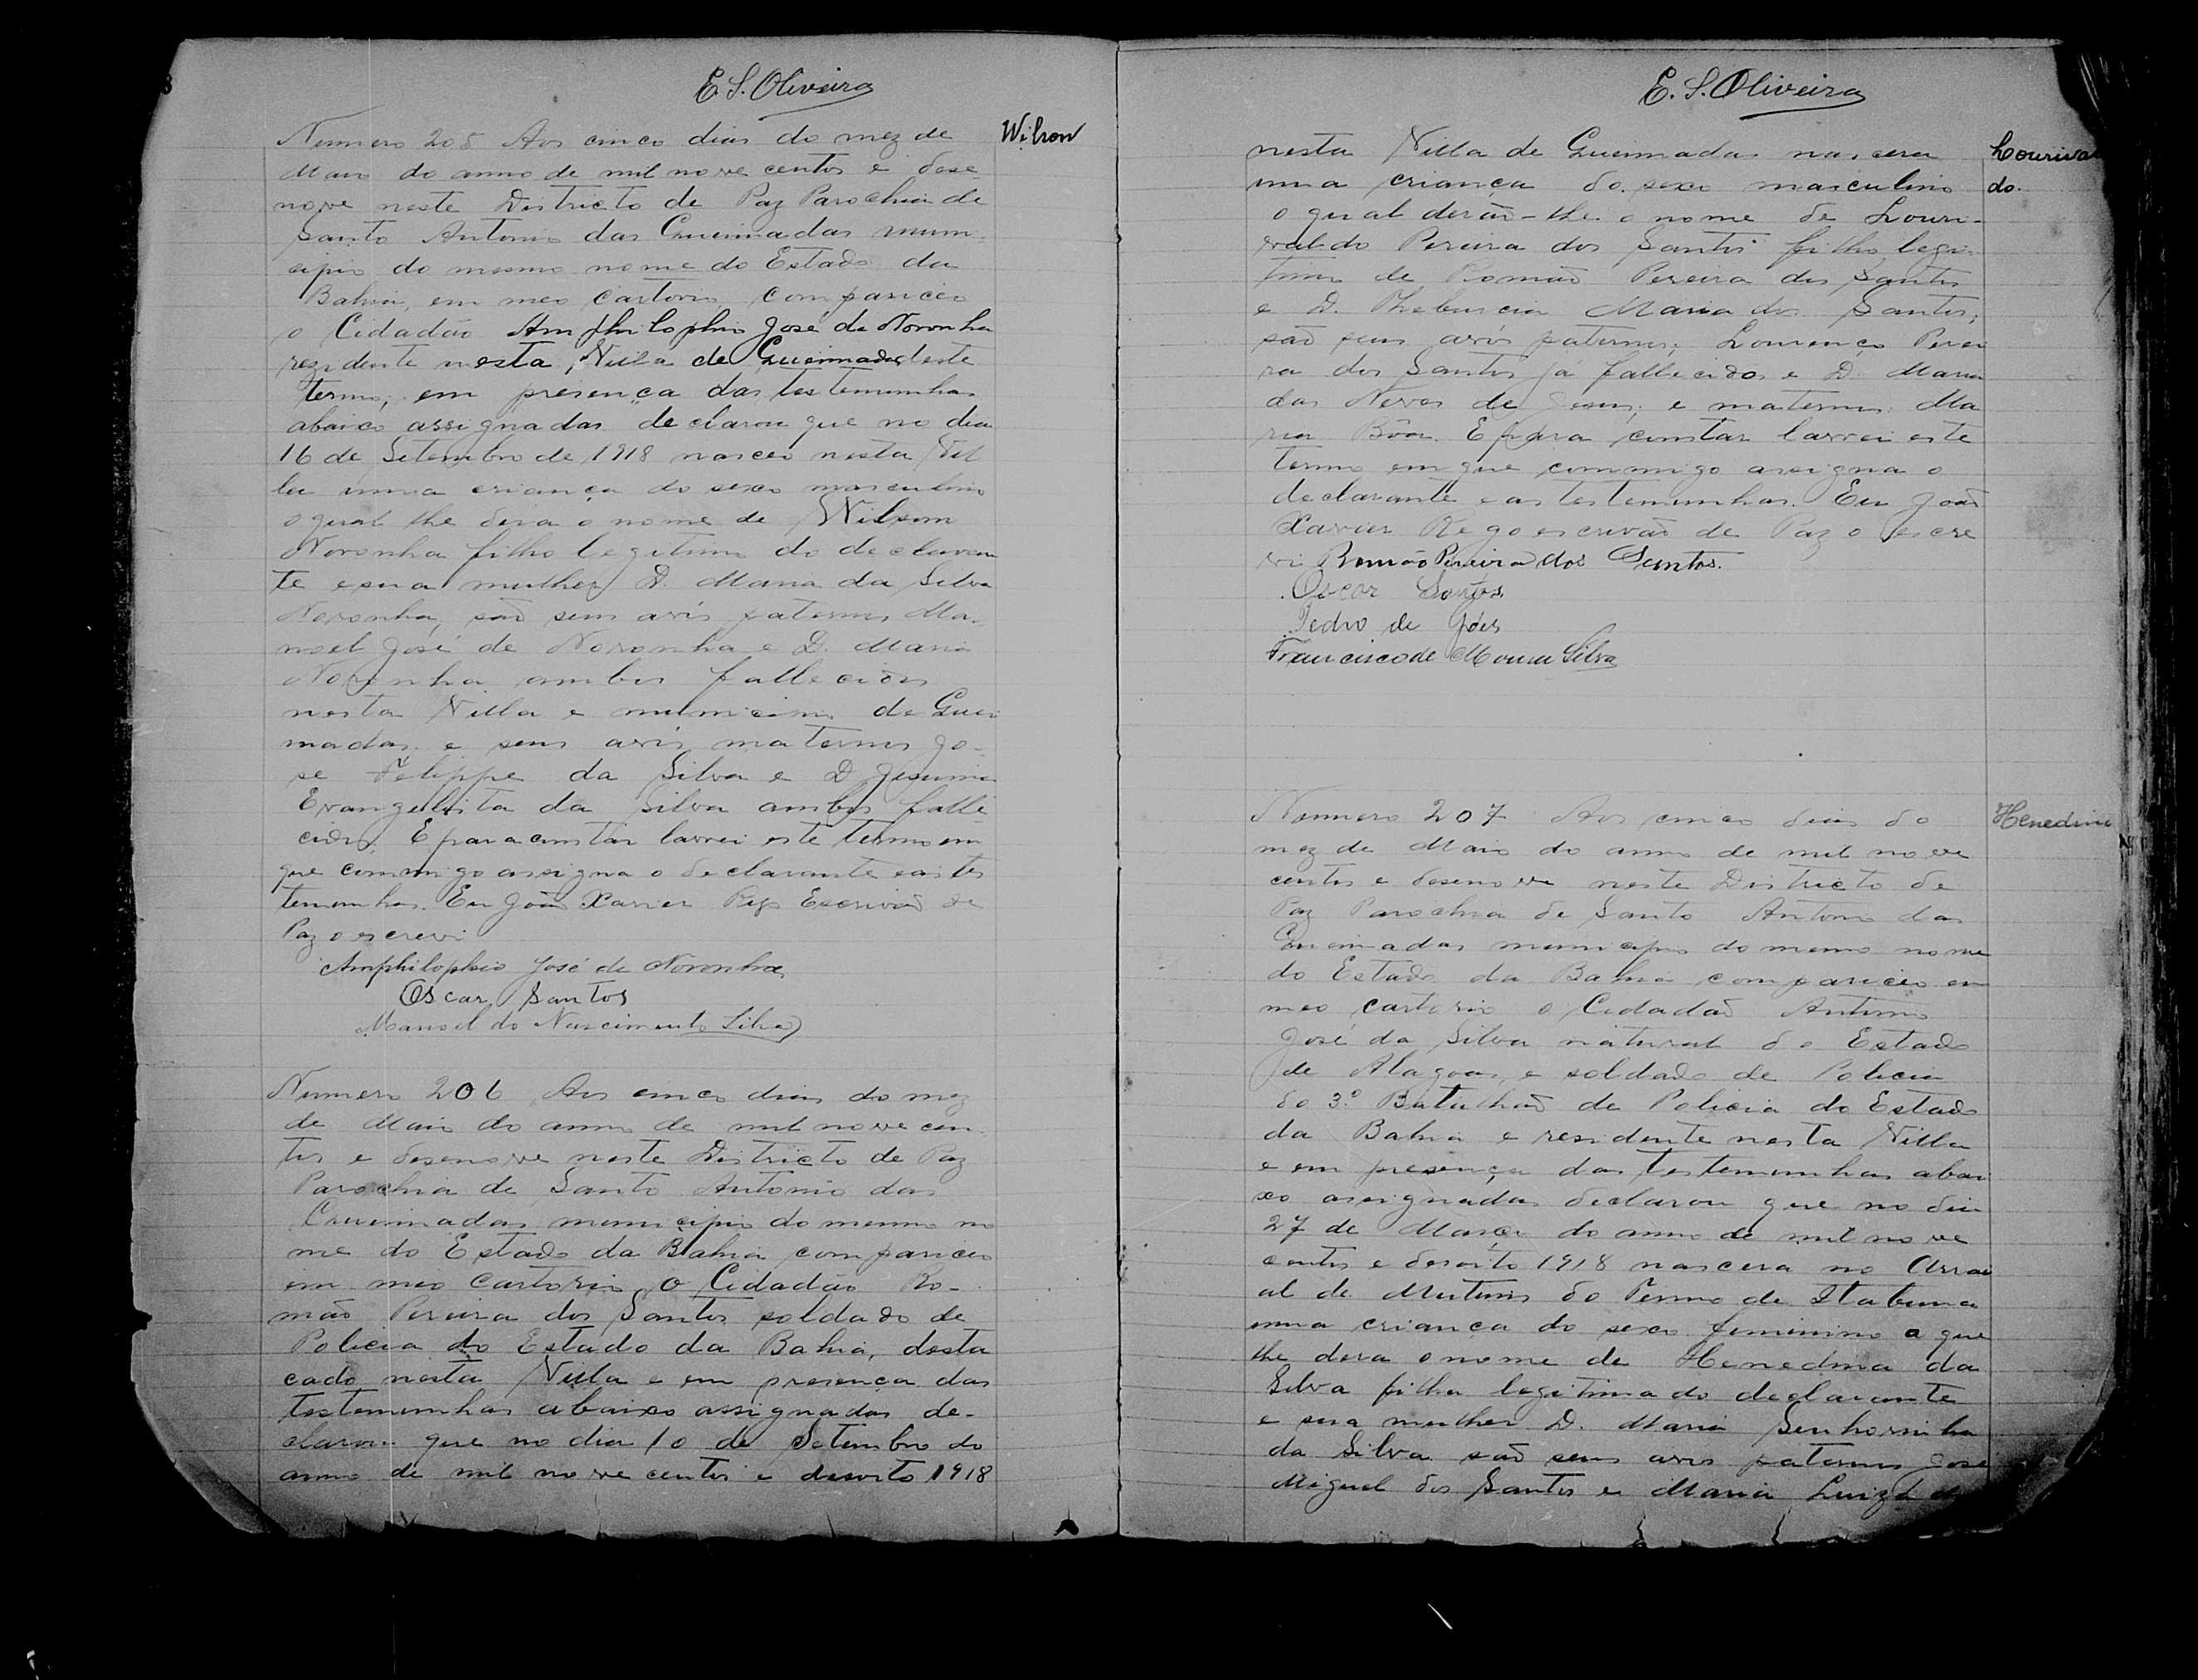 E. S. Oliveira
Numero 205 Aos cinco dias do mez de
Wilson
Maio do anno de mil nove centos e dese-
nove neste Districto de Paz Parochia de
Santo Antonio das Queimadas muni-
cipio do mesmo nome do Estado da
Bahia, em meo Cartorio, compariceo
o Cidadão Amphilophio José de Noronha
rezidente nesta Villa de Queimadas deste
termo, em presença das testemunhas
abaixo assignadas declarou que no dia
16 de Setembro de 1918 nasceo nesta Vil
la uma criança do sexo masculino
o qual lhe dera o nome de Wilson
Noronha filho legitimo do declaran
te e sua mulher D. Maria da Silva
Noronha, são seus avós paternos Ma-
noel José de Noronha e D. Maria
Noronha ambos fallecidos
nesta Villa e municipio de Quei
madas e seus avós maternos Jo-
se Felippe da Silva e D. Jesuina
Evangelista da Silva ambos falle
cidos. E para constar lavrei este termo em
que commigo assigna o declarante e as tes
temunhas. Eu João Xavier Rego Escrivão de
Paz o escrevi
Amphilophio José de Noronha
Oscar Santos
Manoel do Nascimento Silva
Numero 206 Aos cinco dias do mez
de Maio do anno de mil nove cen
tos e desenove neste Districto de Paz
Parochia de Santo Antonio das
Queimadas municipio do mesmo no
me do Estado da Bahia compariceo
em meo Cartorio o Cidadão Ro-
mão Pereira dos Santos soldado de
Policia do Estado da Bahia, desta
cado nesta Villa e em presença das
testemunhas abaixo assignadas de-
clarou que no dia 10 de Setembro do
anno de mil nove centos e desoito 1918
E. S. Oliveira
nesta Villa de Queimadas nascera
Lourival
do.
uma criança do sexo masculino
o qual derão-lhe o nome de Louri-
valdo Pereira dos Santos filho legi-
timo de Romão Pereira dos Santos
e D. Maria dos Santos,
são seus avós paternos, Lourenço Perei
ra dos Santos já fallecidos e D. Maria
das Neves de Jesus, e maternos Ma
ria Bôa. E para constar lavrei este
termo em que commigo assigna o
declarante e as testemunhas. Eu João
Xavier Rego escrivão de Paz o escre
vi Romão Pereira dos Santos.
Oscar Santos
Pedro de Góes
Francisco de Moura Silva
Numero 207 Aos cinco dias do
Henedina
mez de Maio do anno de mil nove
centos e desenove neste Districto de
Paz Parochia de Santo Antonio das
Queimadas municipio do mesmo nome
do Estado da Bahia compariceo em
meo cartorio o Cidadão Antonio
José da Silva natural do Estado
de Alagoas, e soldado de Policia
do 3º Batalhão de Policia do Estado
da Bahia e residente nesta Villa
e em presença das testemunhas abai
xo assignadas declarou que no dia
27 de Março do anno de mil nove
centos e desoito 1918 nascera no Arrai
al de Mutuns do Termo de Itabuna
uma criança do sexo feminino a que
lhe dera o nome de Henedina da
Silva filha legitima do declarante
e sua mulher D. Maria Senhorinha
da Silva são seus avós paternos José
Miguel dos Santos e Maria Luiza